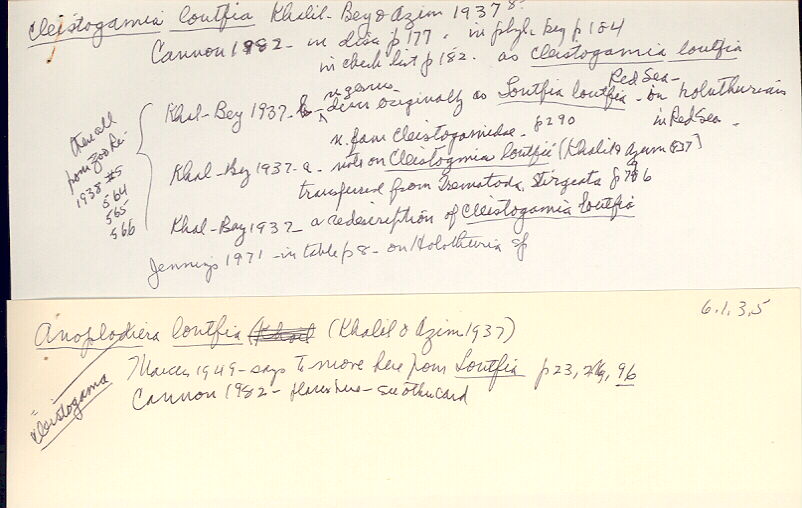 Cleistogamia loutfia Khalil-Bey & Azim 1937 8-
Cannon 1982 - in disc p 177. in phyl. key p 184
in check list p 182. as Cleistogamia loutfia
n genus Red Sea-
Khal-Bey 1937. b - descr originally as Loutfia loutfia - on holothurians
in Red Sea.
n. fam Cleistogamidae. p 290
Khal-Bey 1937 - a - notes on Cleistogmia loutfia (Khalil & Azim 1937)
transferred from Trematoda
Khal-Bay 1937 - a redescription of Cleistogamia loutfia
these all
from Zoo Re-
1938 #5
564
565
566
Jennings 1971 - in table p 8 - on Holothuria sp
6.1.3.5
Anoplodiera loutfia (Khalil & Azim 1937)
Marcus 1949 - says to move here from Loutfia p 23, 96
"Cleistogama
Cannon 1982 - places here - see other card